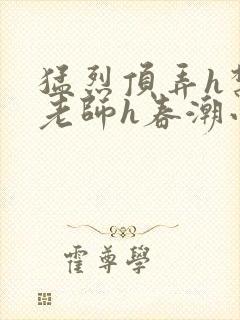 猛烈頂弄h
老師h春潮
霍尊學